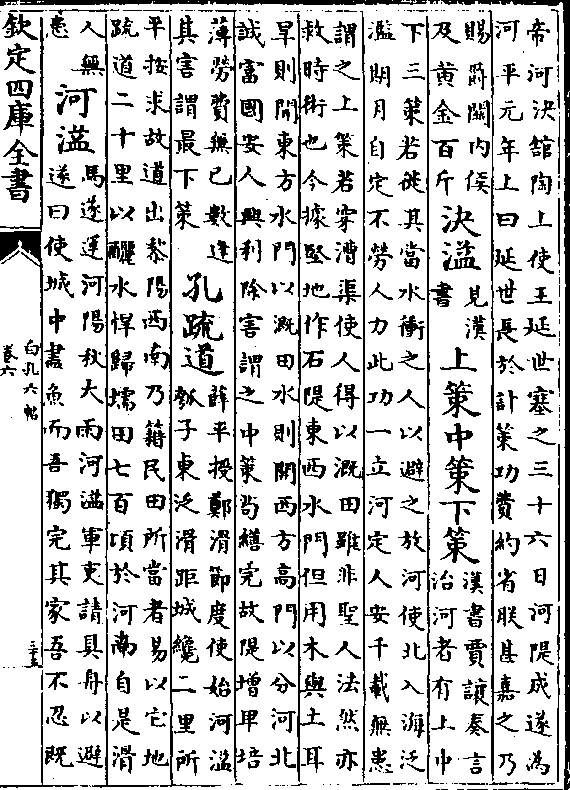 帝河決舘陶上使王延世塞之三十六日河隄成遂為
河平元年上曰延世長於計策功費約省朕甚嘉之乃
賜爵關内侯
及黄金百斤
決溢
見漢
書
上策中策下策
漢書賈讓奏言
治河者有上中
下三策若徙其當水衝之人以避之放河使北入海泛
濫期月自定不勞人力此功一立河定人安千載無患
謂之上策若穿漕渠使人得以溉田雖非聖人法然亦
救時術也今據堅地作石隄東西水門但用木與土耳
旱則開東方水門以溉田水則開西方高門以分河北
誠富國安人興利除害謂之中策茍繕完故隄增卑培
薄勞費無已數逢
其害謂最下策
孔疏道
薛平授鄭滑節度使始河溢
瓠子東泛滑距城纔二里所
平按求故道出黎陽西南乃籍民田所當者易以它地
疏道二十里以釃水悍歸壖田七百頃於河南自是滑
人無
患
河溢
馬遂運河陽秋大雨河溢軍吏請具舟以避
遂曰使城中盡魚而吾獨完其家吾不忍既
欽定四庫全書
白孔六帖
卷六
三五